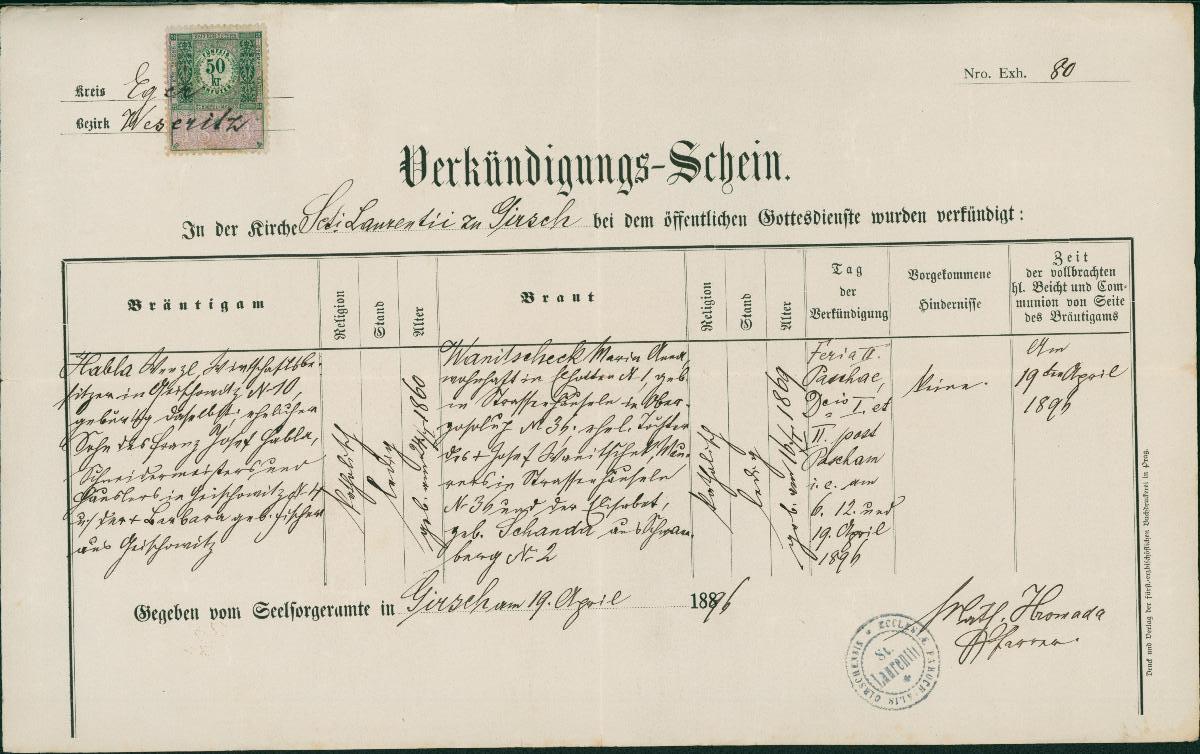 Kreis Eger
Bezirk Weseritz
50
kr.
Nro. Exh. 80
Verkündigungs-Schein.
In der Kirche Scti Laurentii zu Girsch bei dem öffentlichen Gottesdienste wurden verkündigt:
Bräutigam
Religion
Stand
Alter
Braut
Religion
Stand
Alter
Tag
der
Verkündigung
Vorgekommene
Hindernisse
Zeit
der vollbrachten
hl. Beicht und Com-
munion von Seite
des Bräutigams
Habla Wenzl, Wirtschaftsbe-
sitzer in Geischowitz N 10,
gebürtig daselbst, ehelicher
Sohn des Franz Josef Habla,
Schneidermeisters und
Häuslers in Geischowitz N
der + Barbara geb. Fischer
aus Geischowitz
katholisch
ledig
geb. am 1860
Wanitscheck Maria Anna,
wohnhaft in N 1, geb.
in Strasserhäuseln in Ober-
N. 36. ehel. Tochter
des + Josef Wanitschek, Mau-
rers in Strasserhäuseln
N 36 und der Elisabet,
geb. Schanda aus Schwan-
berg N. 2
katholisch
ledig
geb. am 1869
Feria II.
Paschae,
Dois I. et
II. post
Pascham
i. e. am
6. 12. und
19. April
1896
keine.
Am
19ten April
1896
Gegeben vom Seelsorgeramte in Girsch am 19. April 1896
Math. Hromada
Pfarrer.
ECCLESIA PAROCHIALIS GIRSCHENSIS
St.
Laurentii
Druck und Verlag der fürst-erzbischöflichen Buchdruckerei in Prag.